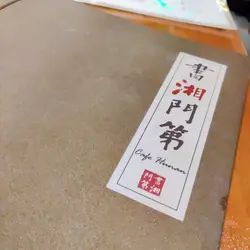 書湘門第
Cafe Hunan
書湘
門第